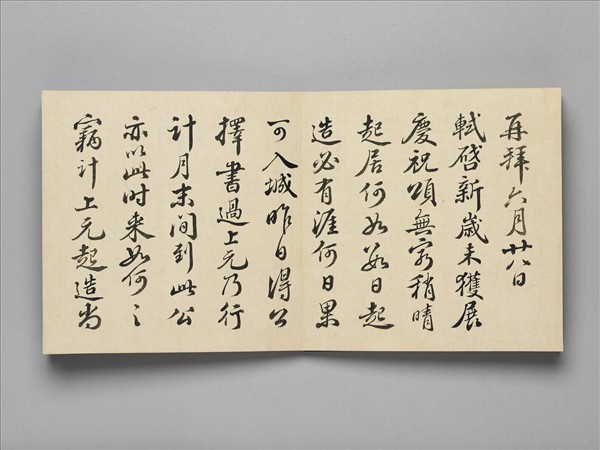 再拜六月廿八日
軾啓新歲未獲展
慶祝頌無窮稍晴
起居何如數日起
造必有涯何日果
可入城昨日得公
擇書過上元乃行
計月末間到此公
亦以此時来如何〻
竊計上元起造尚